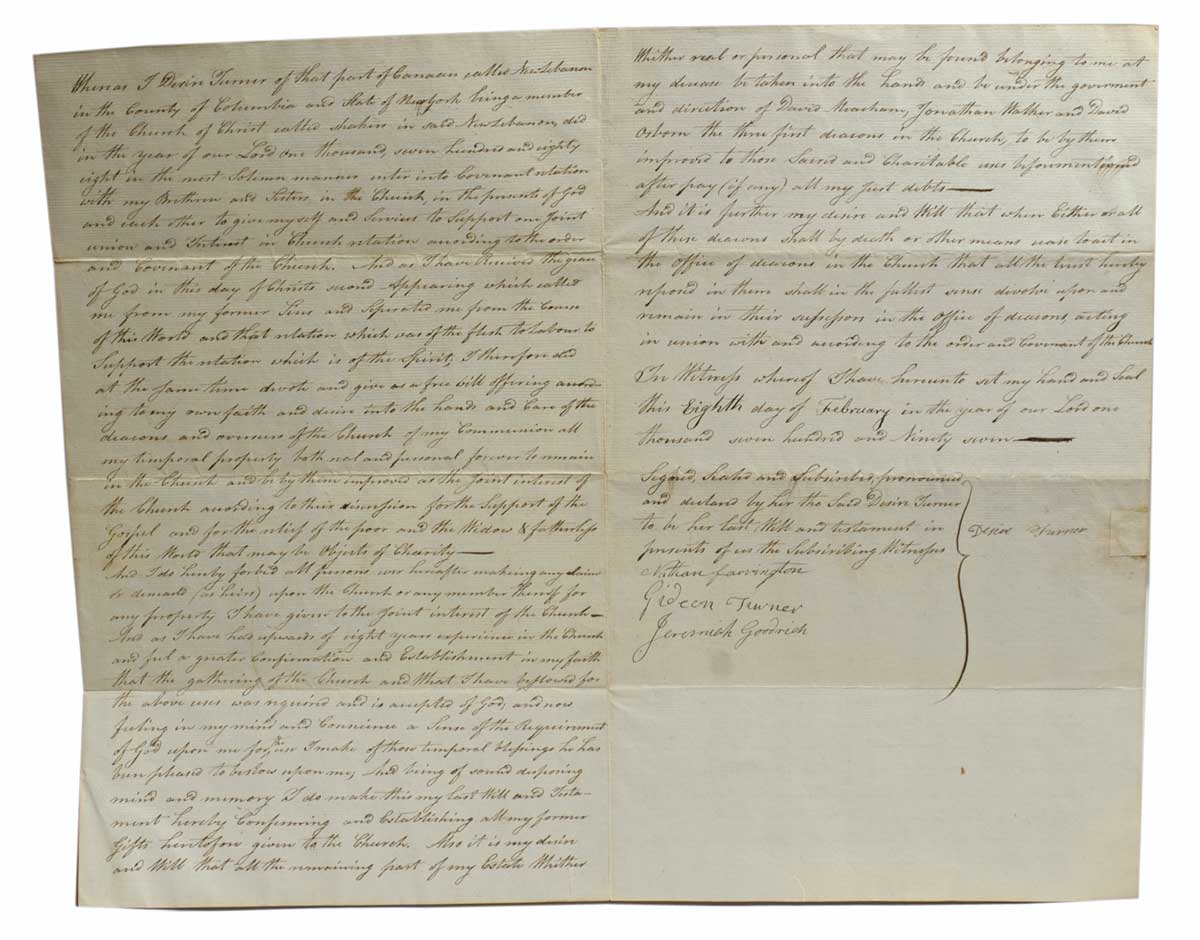 Whereas I Desire Turner of that part of Canaan called New Lebanon
in the County of Columbia and State of New York being a member
of the Church of Christ called shakers in said New Lebanon, did
in the year of our Lord One thousand, seven hundred and eighty
eight in the most Solemn manner enter into Covenant relation
with my Brethren and Sisters, in the Church, in the presents of God
and each other to give myself and Services to Support one Joint
union and Interest in Church relation according to the order
and Covenant of the Church. And as I have Received the grace
of God in this day of Christs second Appearing which called
me from my former Sins and Seperated me from the Course
of this World and that relation which was of the flesh to Labour to
Support the relation which is of the Spirit; I therefore did
at the same time devote and give as a free will offering accord-
ing to my own faith and desire into the hands and Care of the
deacons and overseers of the Church of my Communion all
my temporal property both real and personal forever to remain
in the Church and be by them improved as the Joint interest of
the Church according to their discression for the Support of the
Gospel and for the relief of the poor and the Widow & fatherless
of this World that may be Objects of Charity—
And I do hereby forbid all persons ever hereafter making any claim
or demand (as heirs) upon the Church or any member thereof for
any property I have given to the Joint interest of the Church—
And as I have had upwards of eight years experience in the Church
and feel a greater Confirmation and Establishment in my faith
that the gathering of the Church and What I have bestowed for
the above uses was required and is accepted of God, and now
feeling in my mind and Conscience a Sense of the Requirement
of God upon me for the use I make of those temporal blessings he has
been pleased to bestow upon me; And being of sound disposing
mind and memory I do make this my last Will and Testa-
ment hereby Confirming and Establishing all my former
Gifts heretofore given to the Church. Also it is my desire
and Will that all the remaining part of my Estate Whither
Whither real or personal that may be found belonging to me at
my decease be taken into the hands and be under the goverment
and direction of David Meacham, Jonathan Walker and David
Osborn the three first deacons in the Church, to be by them
improved to those Sacred and Charitable uses beforementioned
after pay (if any) all my just debts—
And it is further my desire and Will that when Either or all
of these deacons shall by death or other means cease to act in
the Office of deacons in the Church that all the trust hereby
reposed in them shall in the fullest sense devolve upon and
remain in their sussessors in the Office of deacons, acting
in union with and according to the order and Covenant of the Church
In Witness whereof I have hereunto set my hand and Seal
this Eighth day of February in the year of our Lord one
thousand seven hundred and Ninety seven—
Signed, Sealed and Subscribed, pronounced
and declared by her the Said Desire Turner
to be her last Will and testament in
presents of us the Subscribing Witnesses
Desire Turner
Nathan Farrington
Gideon Turner
Jeremiah Goodrich